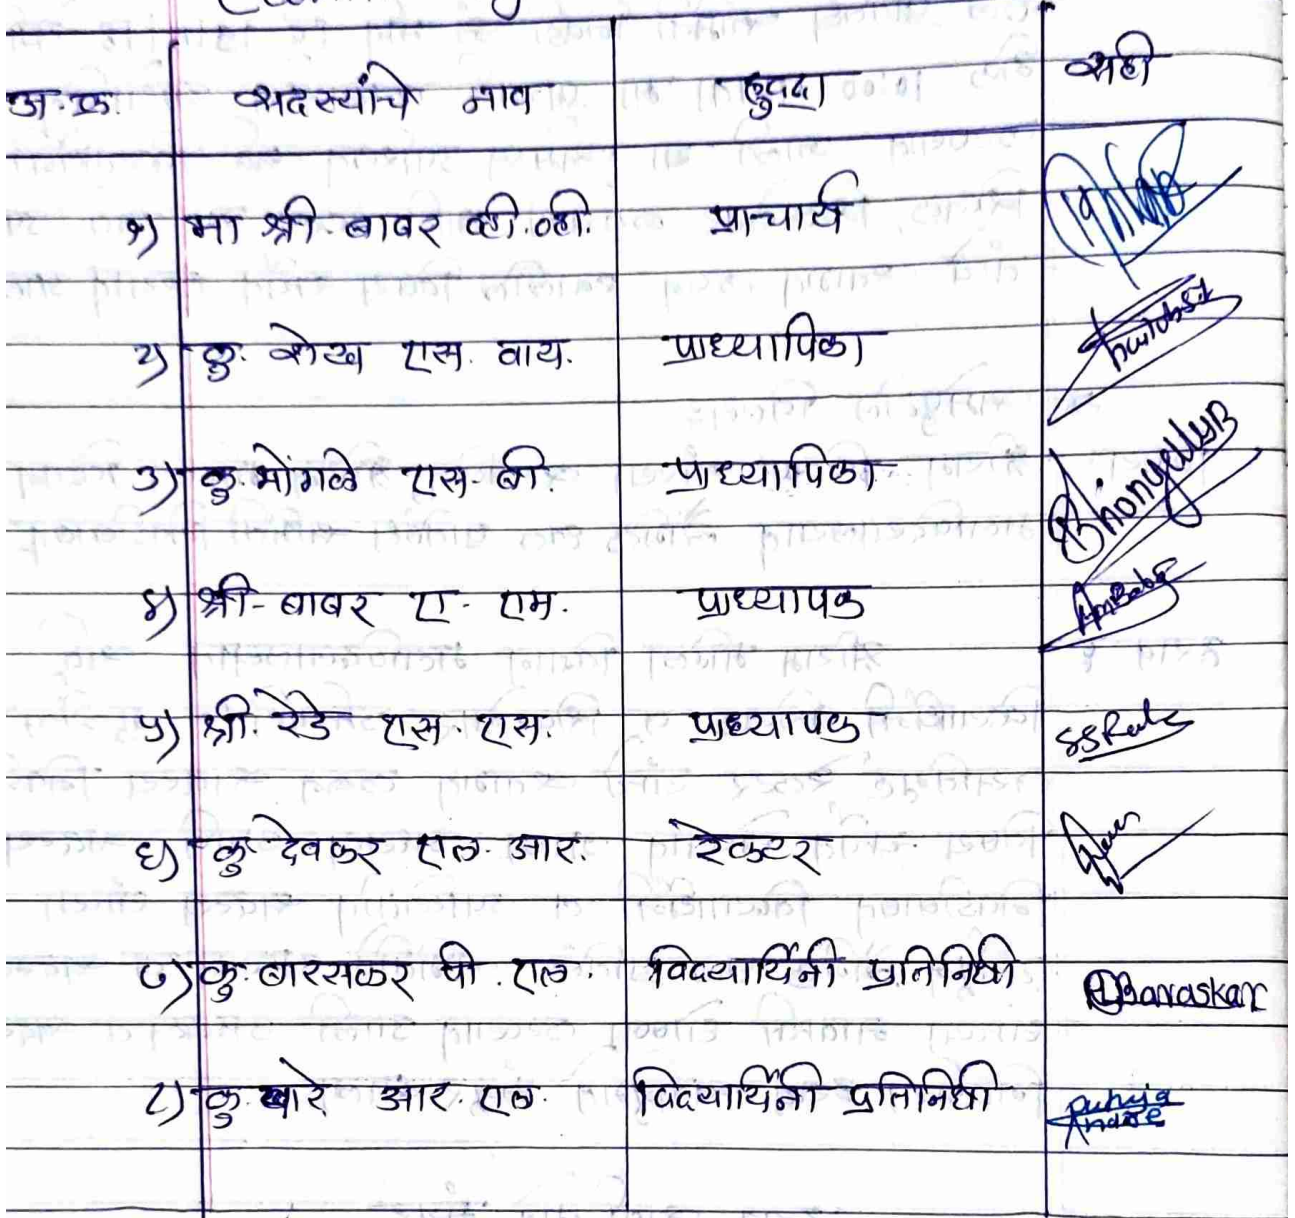 अ.क्र. सदस्यांचे नाव हुद्दा सही
१) मा श्री. बाबर व्ही.व्ही. प्राचार्य
२) कु. शेख एस. वाय. प्राध्यापिका
३) कु भोंगळे एस. बी. प्राध्यापिका
४) श्री- बाबर ए. एम. प्राध्यापक AMBabar
५) श्री. रेडे एस. एस. प्राध्यापक
६) कु देवकर एल. आर. रेक्टर
७) कु. बारसकर पी. एल. विद्यार्थिनी प्रतिनिधी Baraskar
८) कु. खारे आर. एल. विद्यार्थिनी प्रतिनिधी